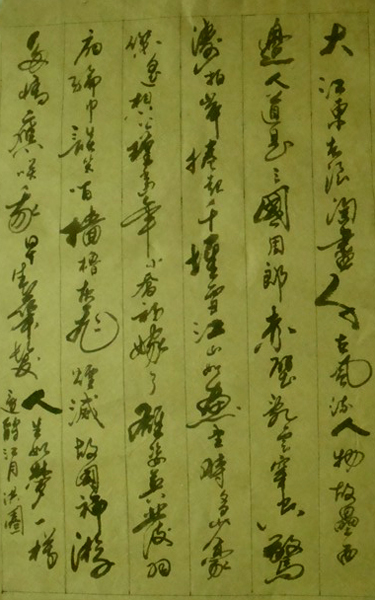 大江東去浪淘盡千古風流人物故壘西
邊人道是三國周郎赤壁亂石穿空驚
濤拍岸捲起千堆雪江山如畫一時多少豪
傑遙想公瑾當年小喬初嫁了雄姿英發羽
扇綸巾談笑間檣櫓灰飛煙滅故國神游
多情應笑我早生華髮人生如夢一樽
還酹江月洪圖